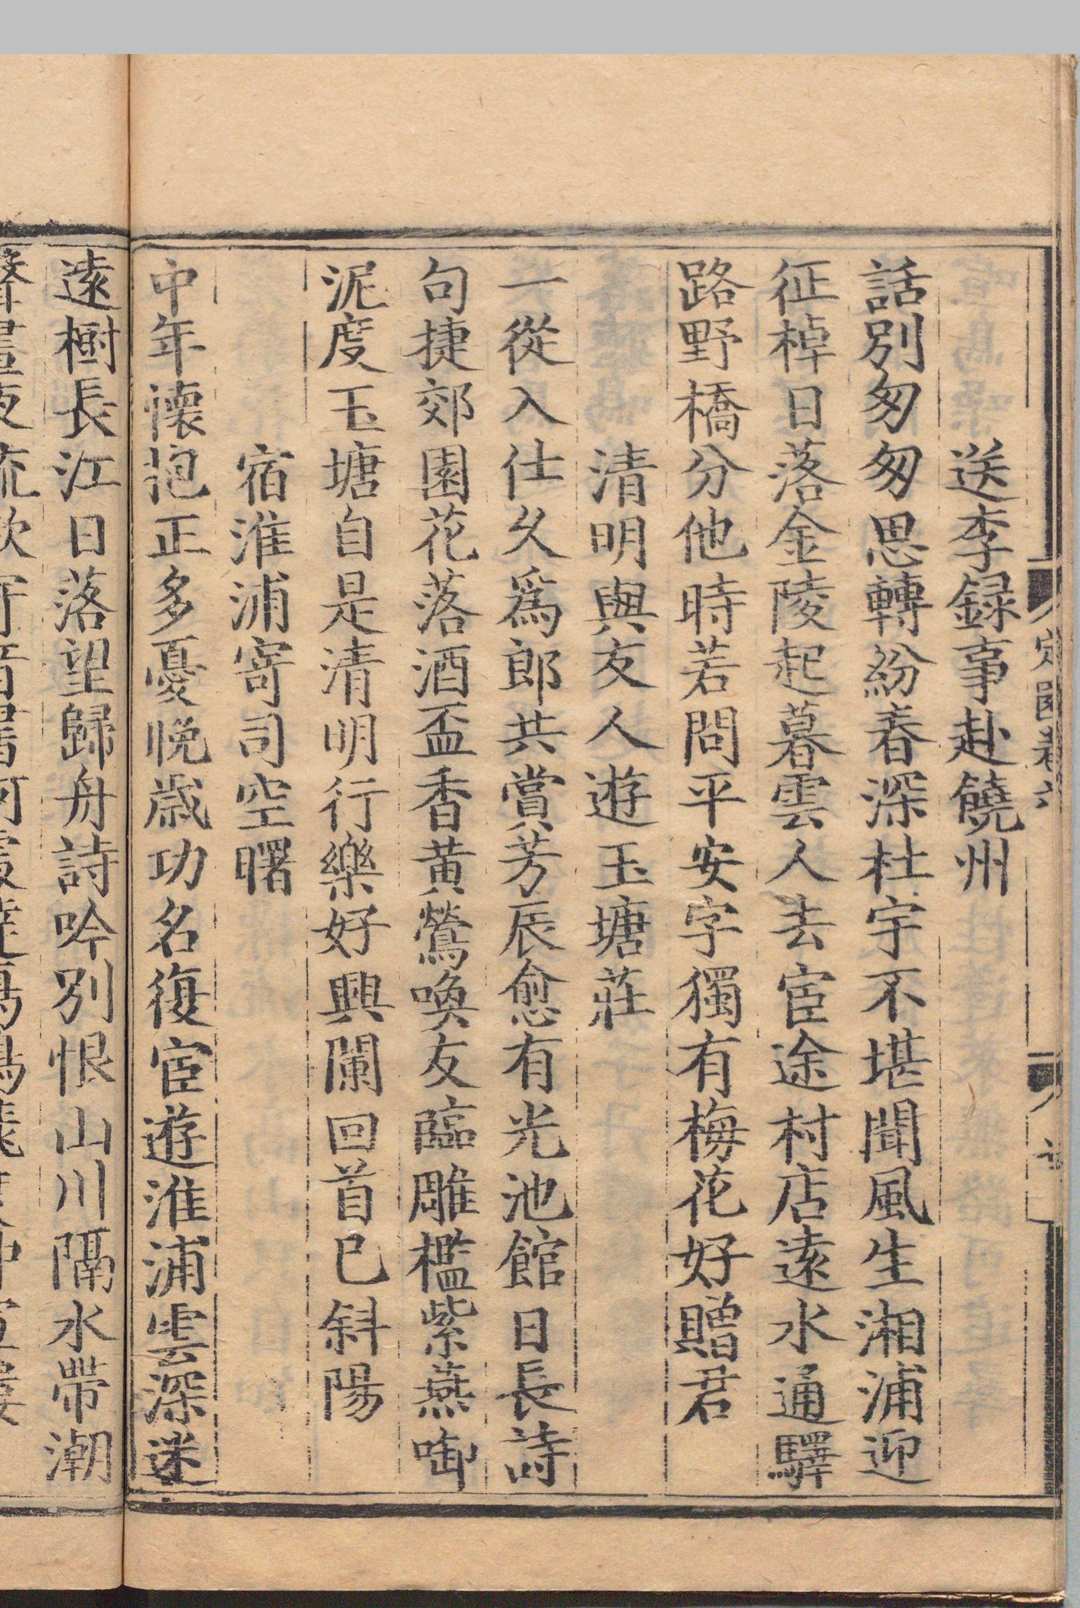 送李録事赴饒州
話別匆匆思轉紛春深杜宇不堪聞風生湘浦迎
征棹日落金陵起暮雲人去宦途村店遠水通驛
路野橋分他時若問平安字獨有梅花好贈君
清明與友人遊玉塘莊
一從入仕久爲郎共賞芳辰愈有光池館日長詩
句捷郊園花落酒盃香黃鶯喚友臨雕檻紫燕啣
泥度玉塘自是清明行樂好興闌回首已斜陽
宿淮浦寄司空曙
中年懷抱正多憂晚歲功名復宦遊淮浦雲深迷
遠樹長江日落望歸舟詩吟別恨山川隔水帶潮
聲晝夜流